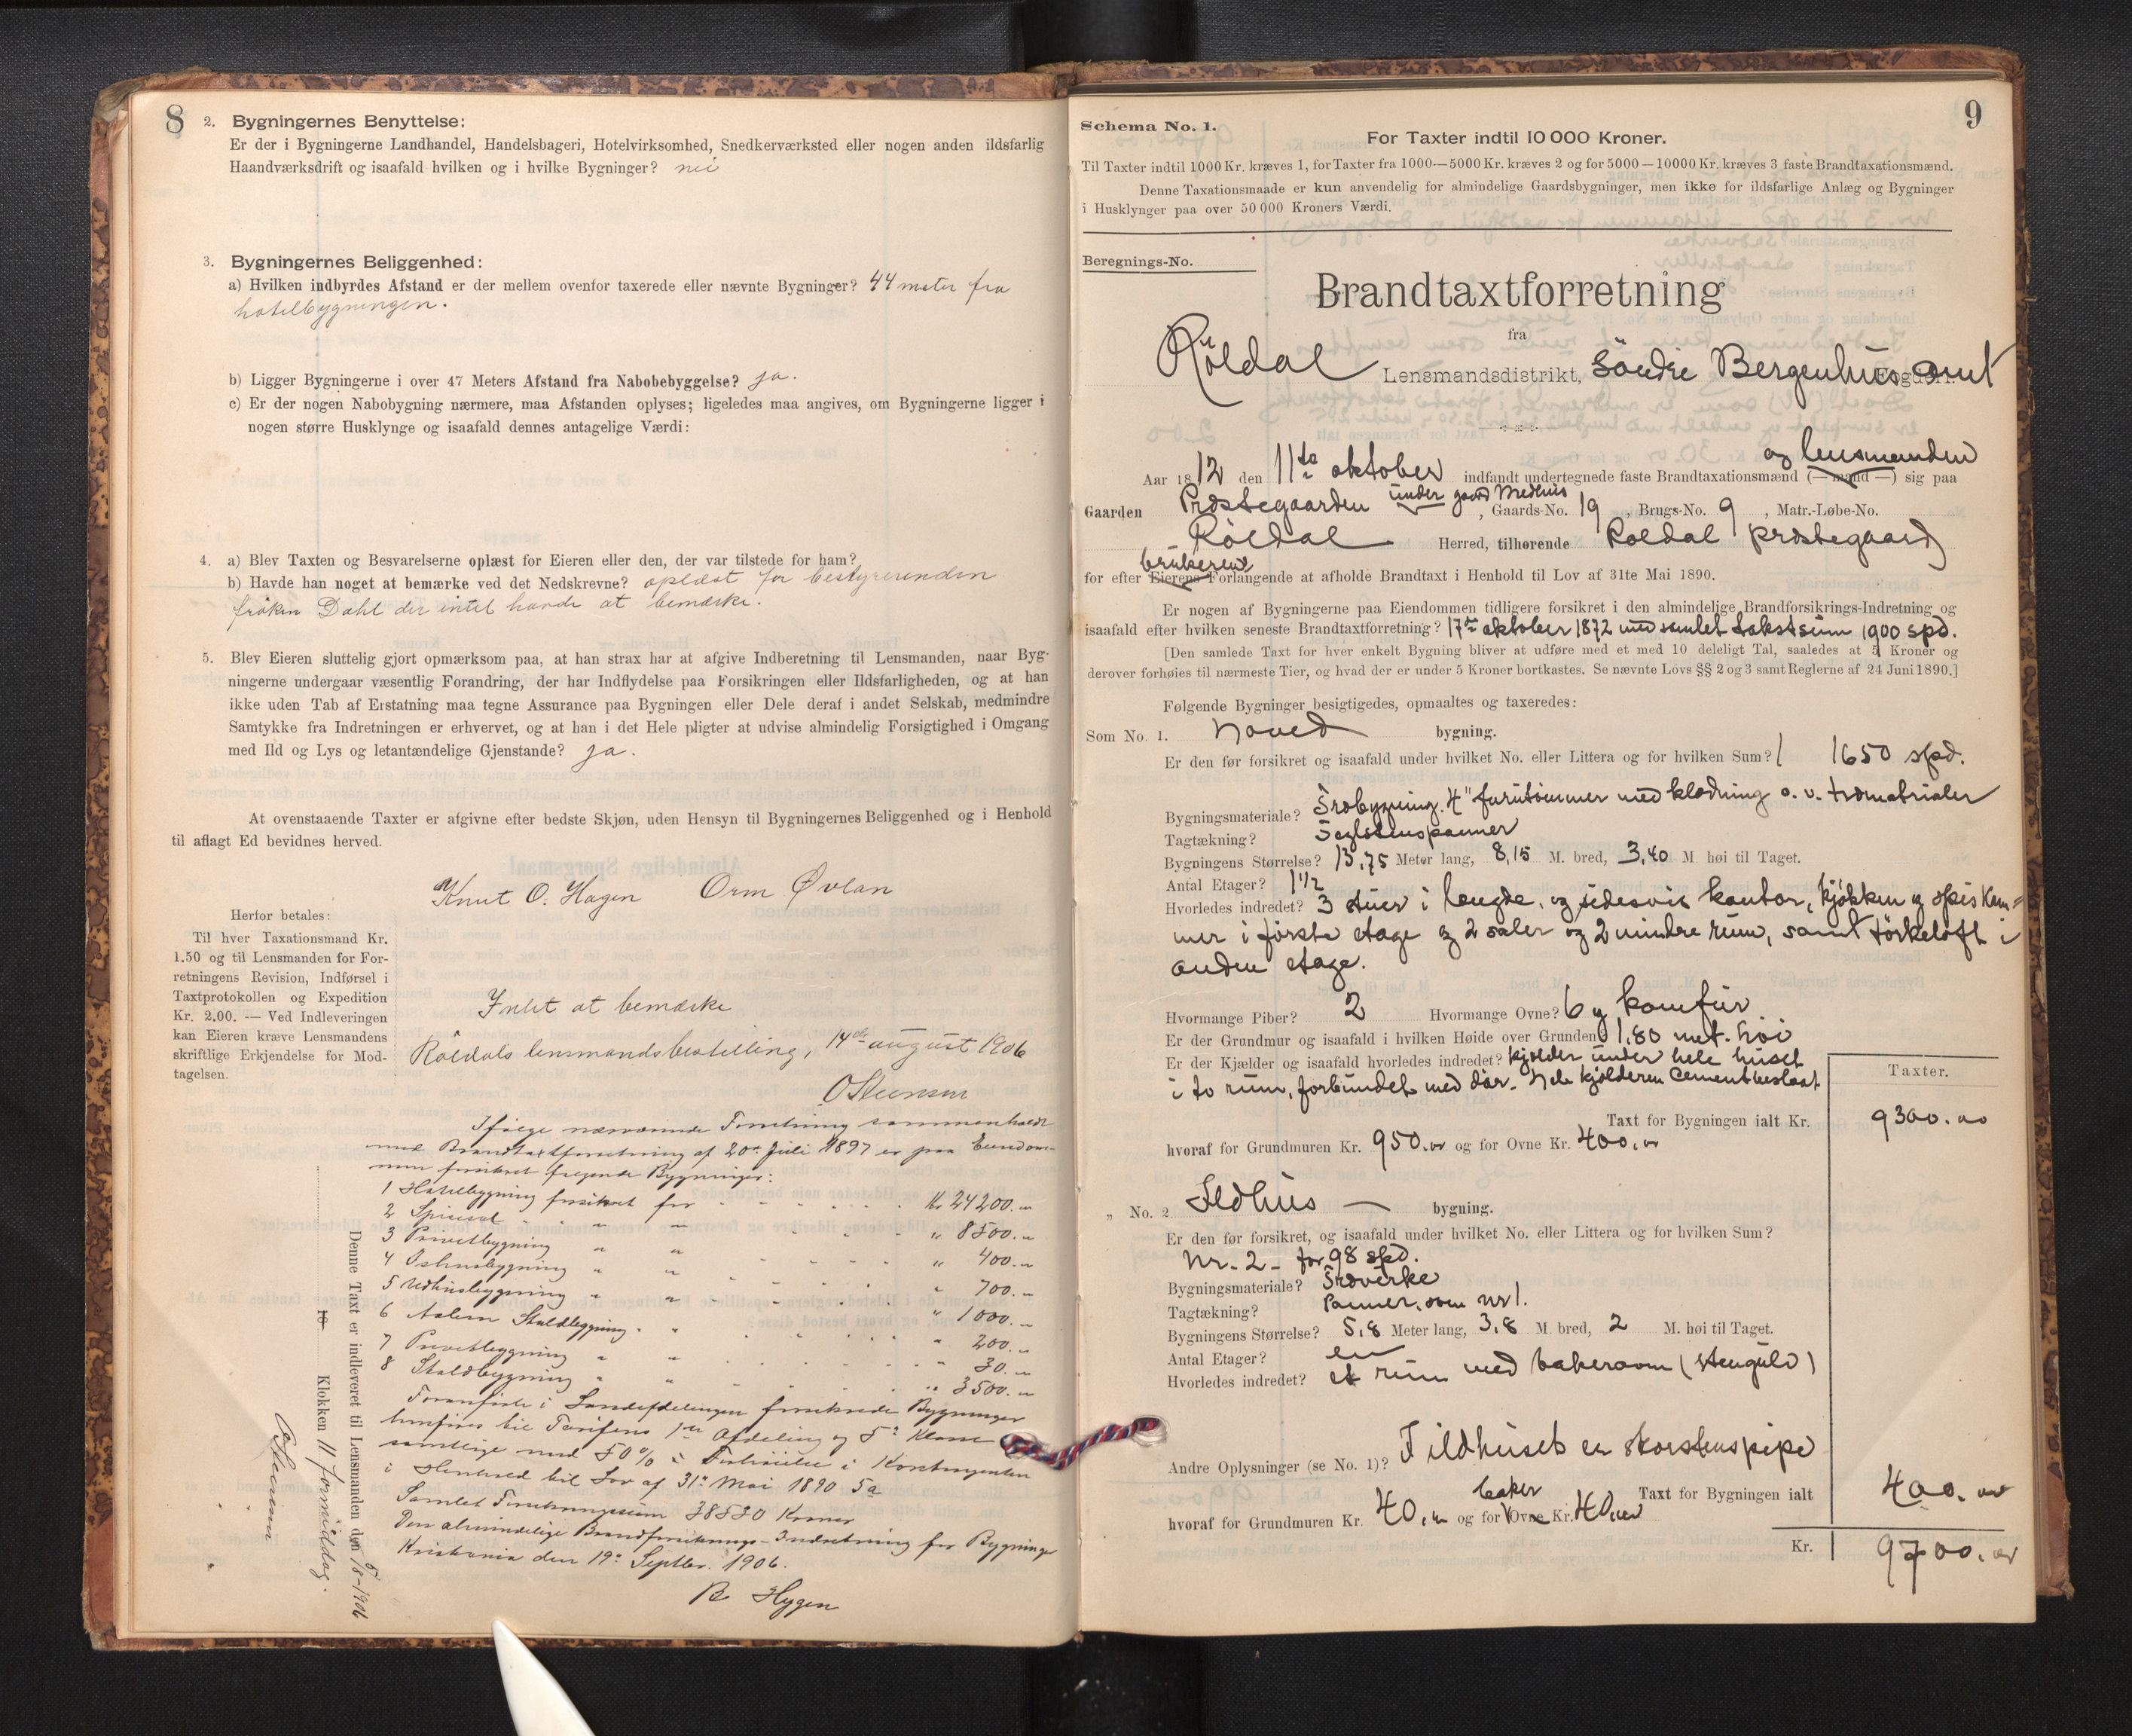 8
2. Bygningernes Benyttelse:
Er der i Bygningerne Landhandel, Handelsbageri, Hotelvirksomhed, Snedkerværksted eller nogen anden ildsfarlig
Haandværksdrift og isaafald hvilken og i hvilke Bygninger? nei
3. Bygningernes Beliggenhed:
a) Hvilken indbyrdes Afstand er der mellem ovenfor taxerede eller nævnte Bygninger? 44 meter fra
hotelbygningen.
b) Ligger Bygningerne i over 47 Meters Afstand fra Nabobebyggelse? ja.
c) Er der nogen Nabobygning nærmere, maa Afstanden oplyses; ligeledes maa angives, om Bygningerne ligger i
nogen større Husklynge og isaafald dennes antagelige Værdi:
4. a) Blev Taxten og Besvarelserne oplæst for Eieren eller den, der var tilstede for ham?
b) Havde han noget at bemærke ved det Nedskrevne? oplæst for bestyrerinden
frøken Dahl der intet havde at bemærke.
5. Blev Eieren sluttelig gjort opmærksom paa, at han strax har at afgive Indberetning til Lensmanden, naar Byg-
ningerne undergaar væsentlig Forandring, der har Indflydelse paa Forsikringen eller Ildsfarligheden, og at han
ikke uden Tab af Erstatning maa tegne Assurance paa Bygningen eller Dele deraf i andet Selskab, medmindre
Samtykke fra Indretningen er erhvervet, og at han i det Hele pligter at udvise almindelig Forsigtighed i Omgang
med Ild og Lys og letantændelige Gjenstande? ja.
At ovenstaaende Taxter er afgivne efter bedste Skjøn, uden Hensyn til Bygningernes Beliggenhed og i Henhold
til aflagt Ed bevidnes herved.
Knut O. Hagen Orm Øvlan
Herfor betales:
Til hver Taxationsmand Kr.
1.50 og til Lensmanden for For-
retningens Revision, Indførsel i
Taxtprotokollen og Expedition
Kr. 2.00. — Ved Indleveringen
kan Eieren kræve Lensmandens
skriftlige Erkjendelse for Mod-
tagelsen.
Intet at bemærke
Röldals lensmandsbestilling, 14de august 1906
OSteensen
Ifølge nærværende Forretning sammenholdt
med Brandtaxtforretning af 20de Juli 1897 er paa Eiendom-
men forsikret følgende Bygninger:
1 Hotelbygning forsikret for Kr 24200.-
2 Spisesal " " " 8500.-
3 Privetbygning " " " 400.-
4 Ishusbygning " " " 700.-
5 Udhusbygning " " " 1000.-
6 Aaben Skuldbygning " " 200.-
7 Privetbygning " " " 30.-
8 Staldbygning " " " 3500.-
Foranførte i Landafdelingen forsikrede Bygninger
henføres til Tarifens 1ste Afdeling og 5te Klasse
samtlige med 50% Forhøielse i Kontingenten
i Henhold til Lov af 31te Mai 1890 5a
Samlet Forsikringssum 38530 Kroner
Den almindelige Brandforsikrings-Indretning for Bygninger
Kristiania den 19de Septbr. 1906.
R Hygen
Denne Taxt er indleveret til Lensmanden den 7/8-1906
18 Klokken 11 formiddag.
OSteensen
9
Schema No. 1.
For Taxter indtil 10 000 Kroner.
Til Taxter indtil 1000 Kr. kræves 1, for Taxter fra 1000—5000 Kr. kræves 2 og for 5000—10000 Kr. kræves 3 faste Brandtaxationsmænd.
Denne Taxationsmaade er kun anvendelig for almindelige Gaardsbygninger, men ikke for ildsfarlige Anlæg og Bygninger
i Husklynger paa over 50 000 Kroners Værdi.
Beregnings-No.
Brandtaxtforretning
fra
Röldal Lensmandsdistrikt, Söndre Bergenhus amt Fogderi.
og lensmanden
Aar 1812 den 11te oktober indfandt undertegnede faste Brandtaxationsmænd (—mand—) sig paa
Gaarden Præstegaarden under gaard Medhus, Gaards-No. 19, Brugs-No. 9, Matr.-Løbe-No.
Røldal Herred, tilhørende Røldal præstegaard
brukerens
for efter Eierens Forlangende at afholde Brandtaxt i Henhold til Lov af 31te Mai 1890.
Er nogen af Bygningerne paa Eiendommen tidligere forsikret i den almindelige Brandforsikrings-Indretning og
isaafald efter hvilken seneste Brandtaxtforretning? 17de oktober 1872 med samlet takstsum 1900 spd.
[Den samlede Taxt for hver enkelt Bygning bliver at udføre med et med 10 deleligt Tal, saaledes at 5 Kroner og
derover forhøies til nærmeste Tier, og hvad der er under 5 Kroner bortkastes. Se nævnte Lovs §§ 2 og 3 samt Reglerne af 24 Juni 1890.]
Følgende Bygninger besigtigedes, opmaaltes og taxeredes:
Som No. 1. hoved bygning.
Er den før forsikret og isaafald under hvilket No. eller Littera og for hvilken Sum? 1 1650 spd.
Bygningsmateriale? Træbygning. 4" furutømmer med klædning o. v. træmaterialer
Tagtækning? Teglstenspanner
Bygningens Størrelse? 13,75 Meter lang, 8,15 M. bred, 3,40 M. høi til Taget.
Antal Etager? 1 1/2
Hvorledes indredet? 3 stuer i længde, og sidesvis kontor, kjøkken og spiskam=
mer i første etage og 2 saler og 2 mindre rum, samt tørkeloft i
anden etage.
Hvormange Piber? 2 Hvormange Ovne? 6 og komfur
Er der Grundmur og isaafald i hvilken Høide over Grunden? 1,80 met. høi
Er der Kjælder og isaafald hvorledes indredet? kjelder under hele huset
i to rum, forbundet med dør. Hele kjelderen cementbeslaat
Taxter.
Taxt for Bygningen ialt Kr. 9300.00
hvoraf for Grundmuren Kr. 950.00 og for Ovne Kr. 400.00
„ No. 2 Ildhus — bygning.
Er den før forsikret, og isaafald under hvilket No. eller Littera og for hvilken Sum?
Nr. 2 - for 98 spd.
Bygningsmateriale? Træverke
Tagtækning? Panner, som nr 1.
Bygningens Størrelse? 5,8 Meter lang, 3,8 M. bred, 2 M. høi til Taget.
Antal Etager? en
Hvorledes indredet? et rum med bakerovn (stengulv)
Andre Oplysninger (se No. 1)? I ildhuset er skorstenspipe
Taxt for Bygningen ialt 400.00
baker
hvoraf for Grundmuren Kr. 40.00 og for Ovne Kr. 40.00
Kr. 9700.00